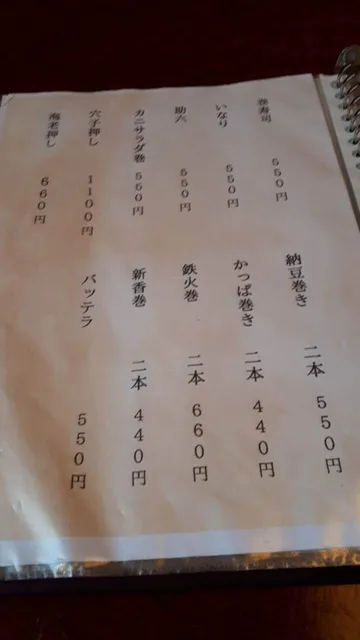 巻寿司 550円
いなり 550円
助六 550円
カニサラダ巻 550円
穴子押し 1100円
海老押し 660円
納豆巻き 二本 550円
かっぱ巻き 二本 440円
鉄火巻 二本 660円
新香巻 二本 440円
バッテラ 550円